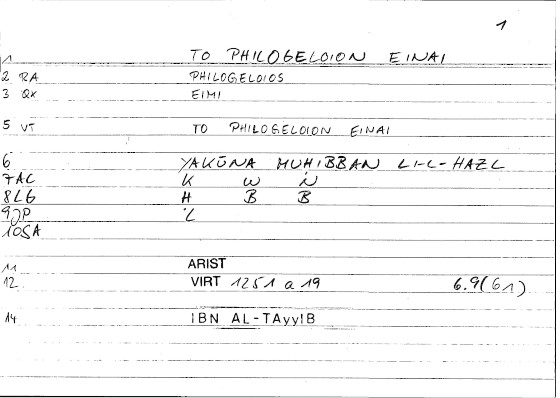 1
1 TO PHILOGELOION EINAI
2 RA PHILOGELOIOS
3 QX EIMI
5 VT TO PHILOGELOION EINAI
6 YAKŪNA MUHIBBAN LI-L-HAZL
7AC K W N
8LG H B B
9JP 'L
10SA
11 ARIST
12 VIRT 1251 a 19 6.9(61)
14 IBN AL-TAyyIB